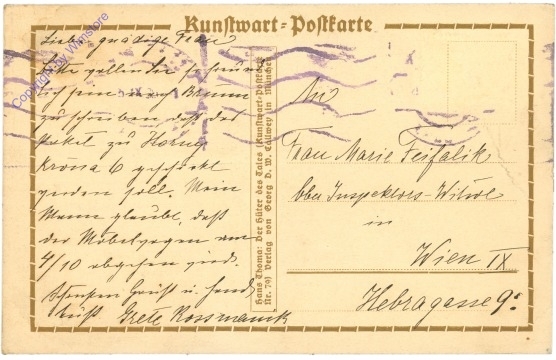 Kunstwart-Postkarte
Liebe gnädige Frau
Bitte wollen Sie so freundlich sein nach Brünn
zu schreiben daß das
Paket zu Horne
Kröna 6 geschickt
werden soll. Mein
Mann glaubt, daß
der Möbelwagen am
4/10 abgehen wird.
Gruß u. Hand
Küß Grete Rossmanik
Hans Thoma: Der Hüter des Tales (Kunstwart-Postkarte
Nr. 79) Verlag von Georg D. W. Callwey in München
An
Frau Marie Feifalik
Inspektors-Witwe
in
Wien IX
Hebragasse 9
Copyright by Wnjstore